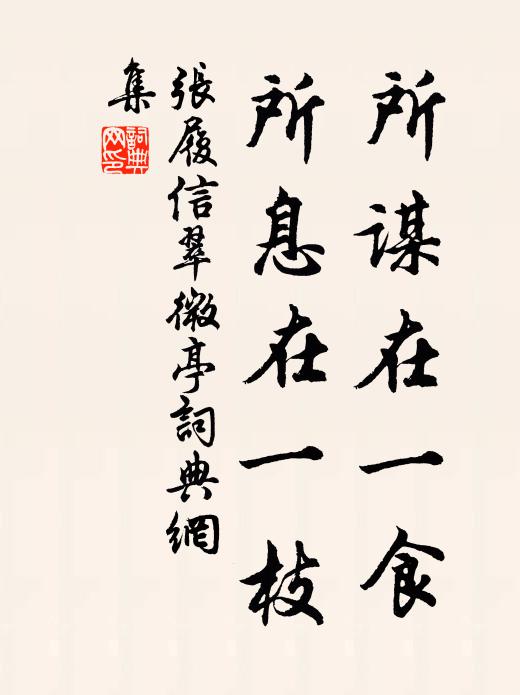 所谋在一食
所息在一枝
張履信翠微亭詞典網
集
詞典
网印